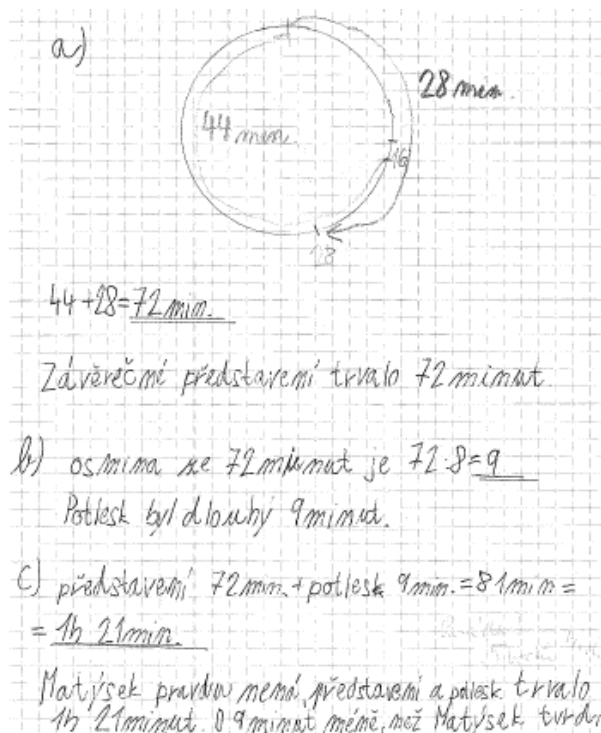 a)
28 min.
44 min.
16
28
44 + 28 = 72 min.
Závěrečné představení trvalo 72 minut.
b) osmina ze 72 minut je 72:8=9
Potlesk byl dlouhý 9 minut.
c) představení 72 min. + potlesk 9 min. = 81 min =
= 1h 21min.
Matýsek pravdu nemá, představení a potlesk trvalo
1h 21 minut. O 9 minut méně, než Matýsek tvrdí